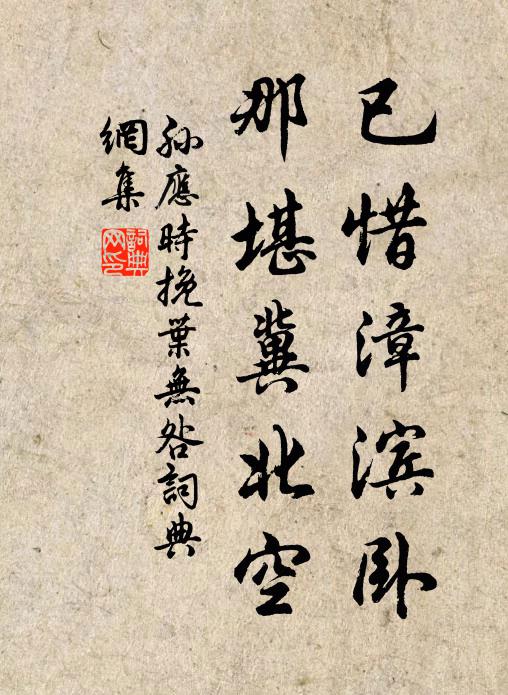 已惜漳滨卧
那堪冀北空
孙應時挽葉無咎詞典
網集
詞典網印